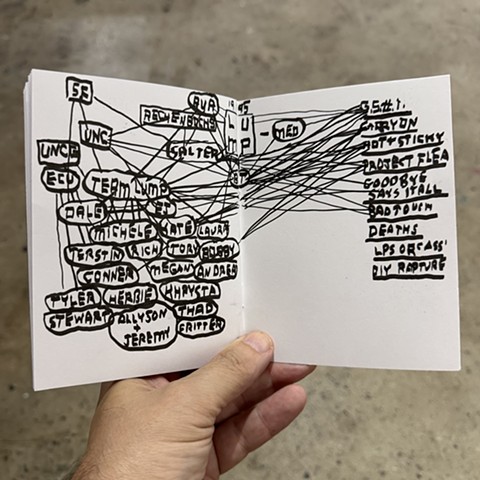 SE
BVA
1995
RECHENBACHS
LUMP
MED
UNC
SALTER
UNCG
ECU
TEAM LUMP
DALE
ED
MICHELE
KATE
LAURA
TERSTIN
RICH
TORY
BOBBY
CONNER
MEGAN
ANDREA
TYLER
HERBIE
KHRYSTA
STEWART
ALLYSON
+
JEREMY
THAD
CRITTER
CARRYON
HOT + STICKY
PROJECT FLEA
GOODBYE
SAYS IT ALL
BAD TOUCH
DEATHS
LPS OR CASS'
DIY RAPTURE